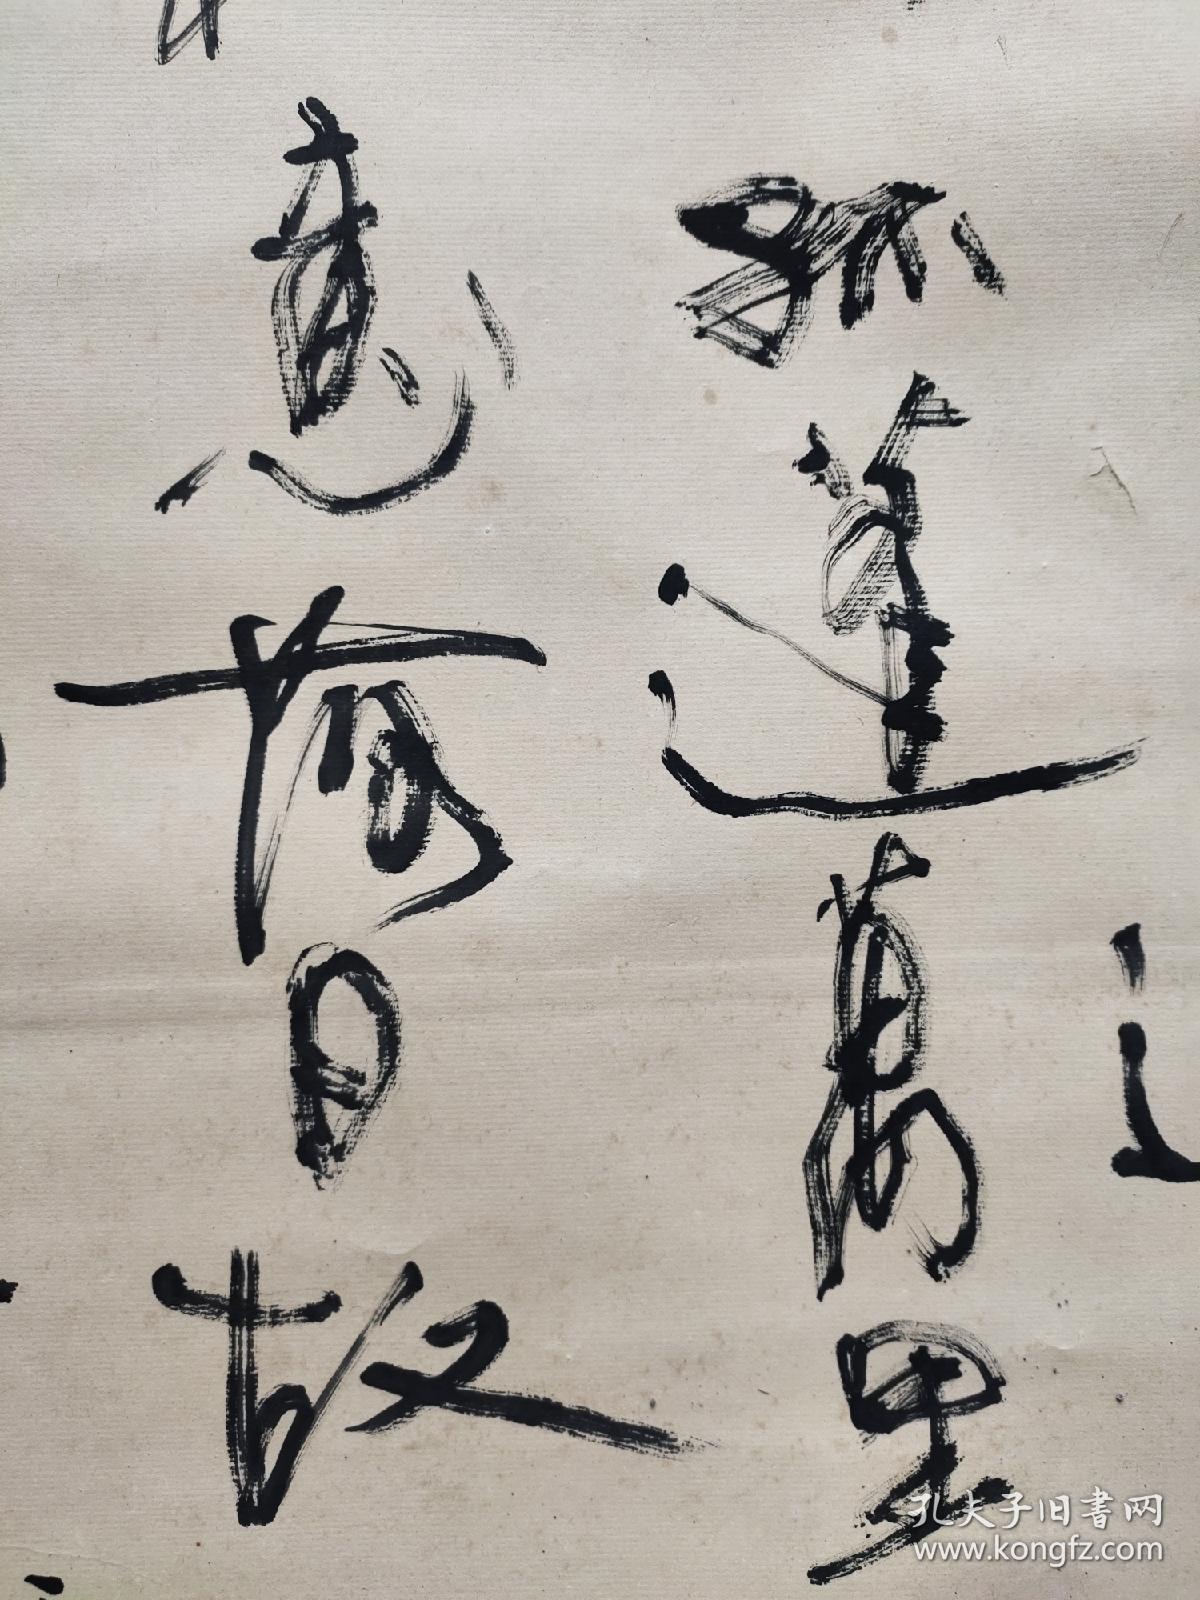 孤蓬萬里
意落日故
孔夫子旧書网
www.kongfz.com